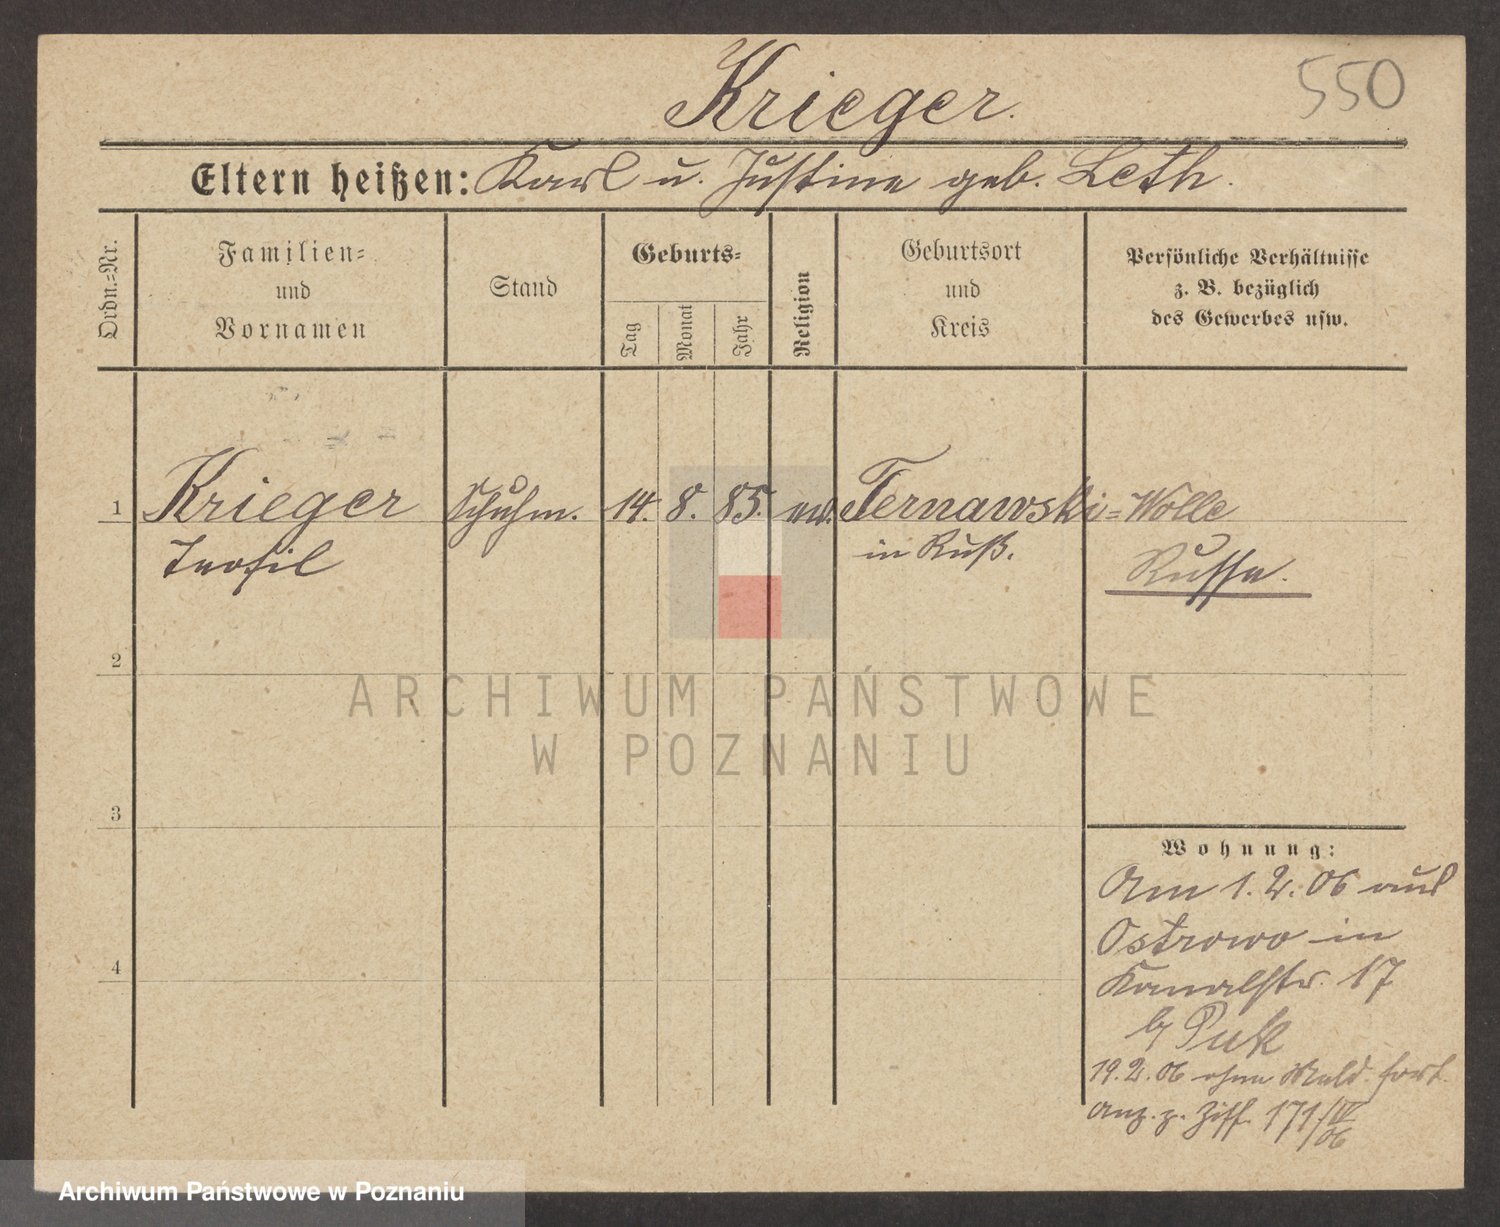 Krieger.
550
Eltern heißen: Karl u. Justine geb. Leth.
Ordn.=Nr.
Familien=
und
Vornamen
Stand
Geburts=
Tag
Monat
Jahr
Religion
Geburtsort
und
Kreis
Persönliche Verhältnisse
z. B. bezüglich
des Gewerbes usw.
1
Krieger
Teofil
Schuhm.
14.
8.
85.
ev.
Ternawski=Wolle
in Ruß.
Russe.
2
3
4
ARCHIWUM PAŃSTWOWE
W POZNANIU
Wohnung:
Am 1.2.06 aus
Ostrowo in
Kanalstr. 17
b/ Puk
19.2.06 ohne Meld. fort.
Anz. z. Ziff. 171/IV
06
Archiwum Państwowe w Poznaniu